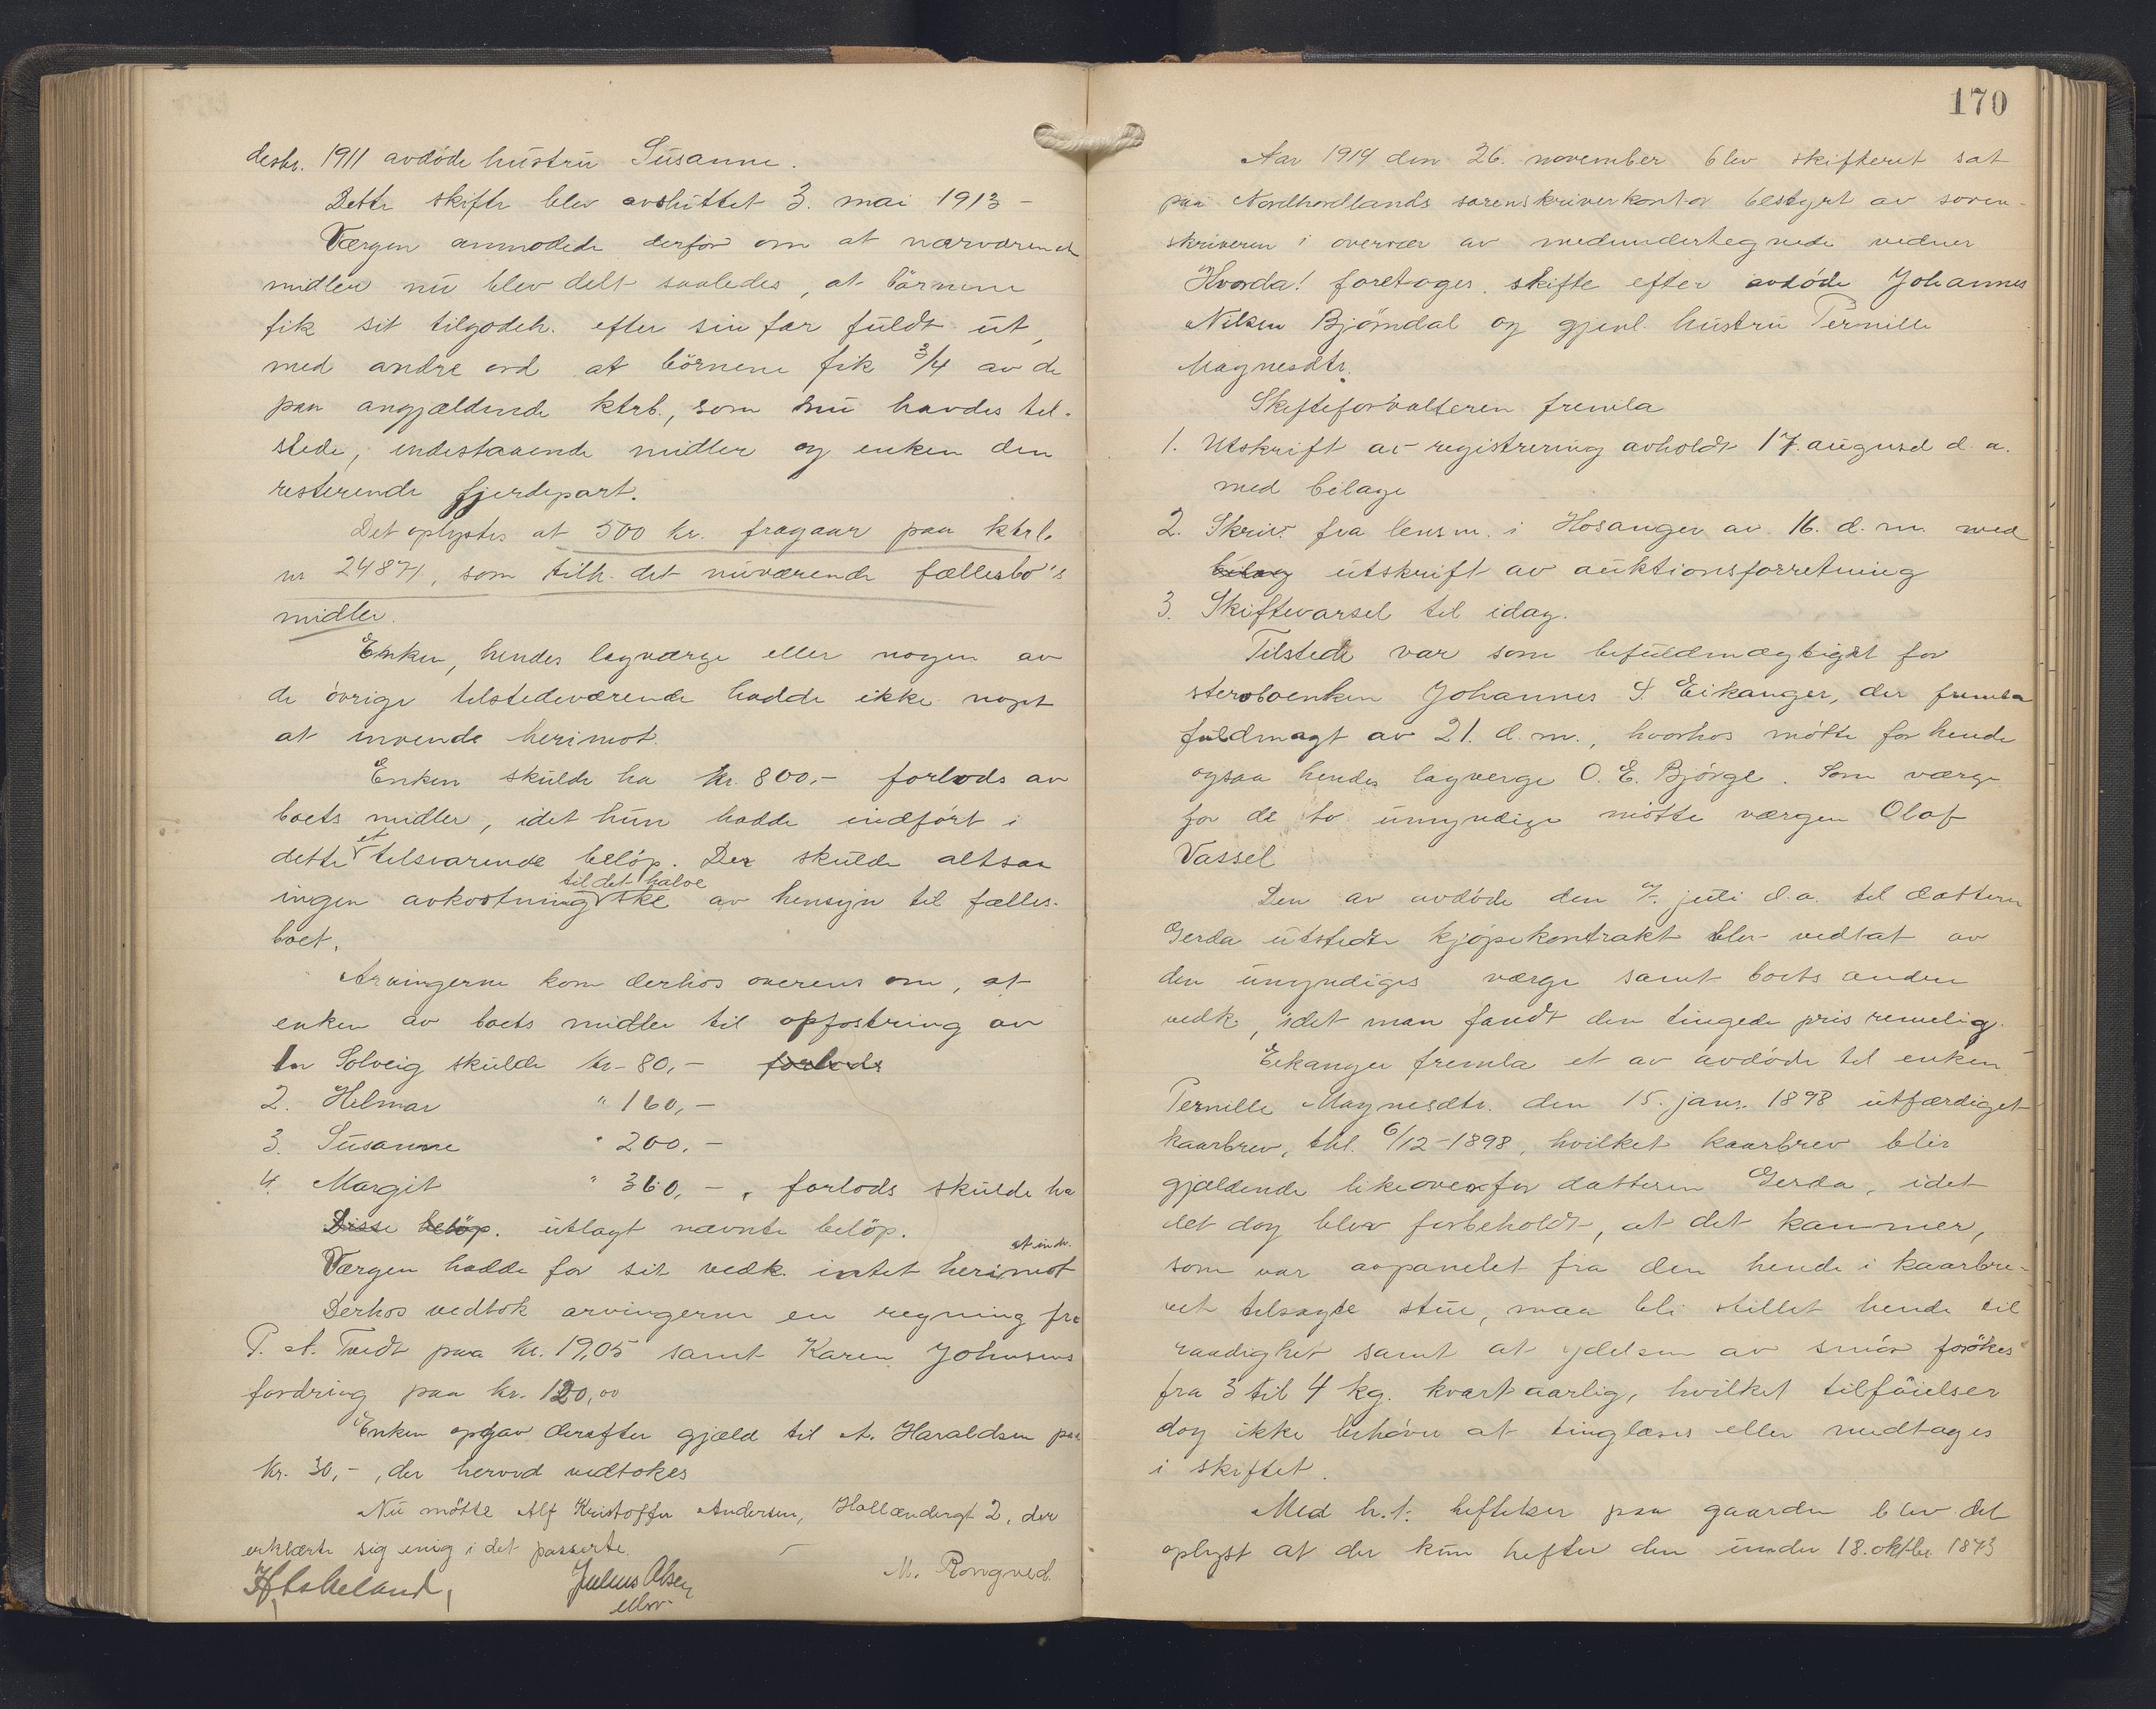 desbr. 1911 avdöde hustru Susanne.
Dette skifte blev avsluttet 3. mai 1913 -
Værgen anmodede derfor om at nærværende
midler nu blev delt saaledes, at börnene
fik sit tilgodeh. efter sin far fuldt ut,
med andre ord at börnene fik 3/4 av de
paa angjældende ktrb., som nu havdes til-
stede, indestaaende midler og enken den
resterende fjerdepart.
Det oplystes at 500 kr. fragaar paa ktrb.
nr 24871, som tilh. det nuværende fællesbo's
midler.
Enken, hendes lagværge eller nogen av
de övrige tilstedeværende hadde ikke noget
at invende herimot.
Enken skulde ha kr. 800,- forlods av
boets midler, idet hun hadde indfört i
dette et tilsvarende belöp. Der skulde altsaa
ingen avkortning til det halve ske av hensyn til fælles-
boet.
Arvingerne kom derhos overens om, at
enken av boets midler til opfostring av
1. Solveig skulde kr. 80,- forlods
2. Helmar " 160,-
3. Susanne " 200,-
4. Margit " 360,-, forlods skulde ha
Disse belöp. utlagt nævnte belöp.
Værgen hadde for sit vedk. intet herimot at indv.
Derhos vedtok arvingerne en regning fra
P. A. Tvedt paa kr. 19,05 samt Karen Johnsens
fordring paa kr. 120,00
Enken opgav derefter gjæld til A. Haraldsen paa
kr. 30,-, der herved vedtokes
Nu mötte Alf Kristoffer Andersen, Hollændergt 2, der
erklærte sig enig i det passerte.
Julius Olsen M. Rongved
170
Aar 1914 den 26. november blev skifteret sat
paa Nordhordlands sorenskriverkontor bestyrt av soren-
skriveren i overvær av medundertegnede vidner
Hvorda! foretoges skifte efter avdöde Johannes
Nilsen Bjørndal og gjenl. hustru Pernille
Magnesdtr.
Skifteforvalteren fremla
1. Utskrift av registrering avholdt 17. august d. a.
med bilage
2. Skriv. fra lensm. i Hosanger av 16. d. m. med
bilag utskrift av auktionsforretning
3. Skiftevarsel til idag.
Tilstede var som befuldmægtiget for
sterboenken Johannes S. Eikanger, der fremla
fuldmagt av 21. d. m., hvorhos mötte for hende
ogsaa hendes lagverge O. E. Bjørge. Som værge
for de to umyndige mötte værgen Olaf
Vassel
Den av avdöde den 7. juli d. a. til datteren
Gerda utstedte kjöpekontrakt blev vedtat av
den umyndiges værge samt boets anden
vedk., idet man fandt den tingede pris rimelig.
Eikanger fremla et av avdöde til enken
Pernille Magnesdtr. den 15. janr. 1898 utfærdiget
kaarbrev, thl. 6/12-1898, hvilket kaarbrev blir
gjældende likeoverfor datteren Gerda, idet
det dog blev forbeholdt, at det kammer,
som var avpanelet fra den hende i kaarbre-
vet tilsagte stue, maa bli stillet hende til
raadighet samt at ydelsen av smör forökes
fra 3 til 4 kg. kvartaarlig, hvilket tilföielser
dog ikke behöver at tinglæses eller medtages
i skiftet.
Med h. t. heftelser paa gaarden blev det
oplyst at der kun hefter den under 18. oktbr 1873